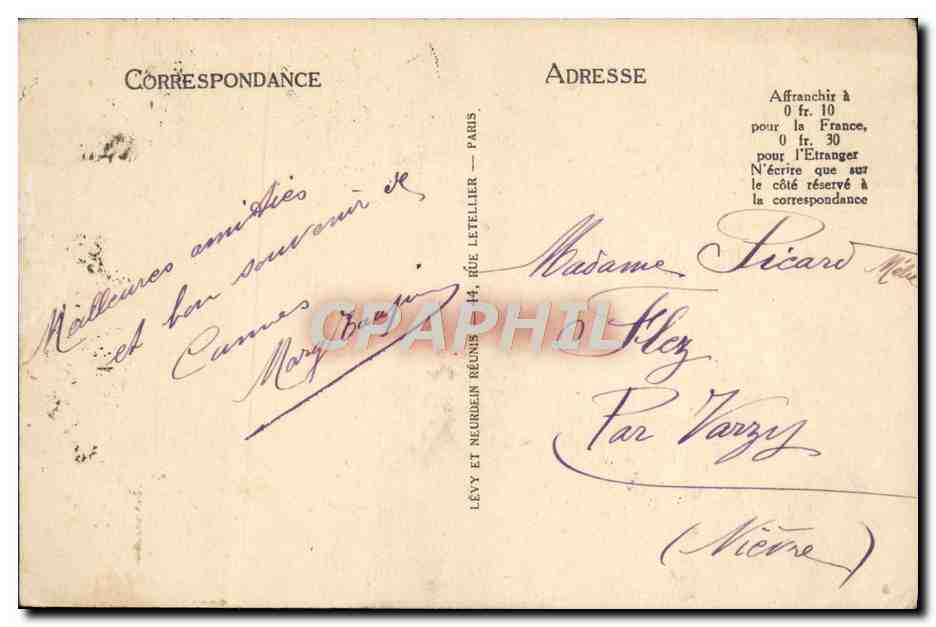 CORRESPONDANCE
Meilleures amitiés
et bon souvenir de
Cannes
Mary
LÉVY ET NEURDEIN RÉUNIS 44, RUE LETELLIER — PARIS
ADRESSE
Affranchir à
0 fr. 10
pour la France,
0 fr. 30
pour l'Etranger
N'écrire que sur
le côté réservé à
la correspondance
Madame Picard
à Flez
Par Varzy
(Nièvre)
CPAPHIL